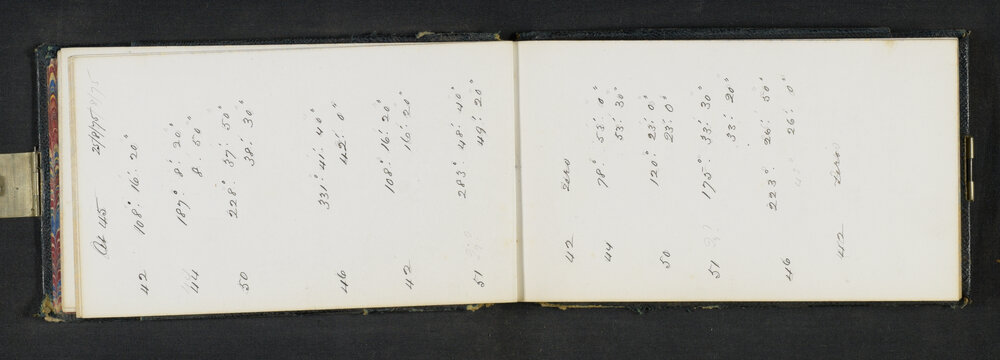 At 45 25/6/75
42 108° 16' 20"
44 187° 8' 20"
8' 50"
50 228° 37' 50"
38' 30"
46 331° 41' 40"
42' 0"
42 108° 16' 20"
16' 20"
51 283° 48' 40"
49' 20"
42 zero
44 78° 53' 0"
53' 30"
50 120° 23' 0"
23' 0"
51 175° 33' 30"
33' 20"
46 223° 26' 50"
26' 0"
42 zero